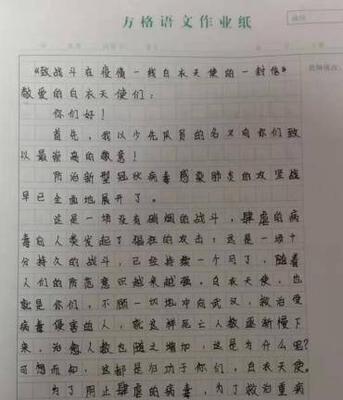 方格语文作业纸
《致战斗在疫情一线白衣天使的一封信》
敬爱的白衣天使们：
你们好！
首先，我以少先队员的名义向你们致
以最崇高的敬意！
防治新型冠状病毒感染肺炎的攻坚战
早已全面地展开了。
这是一场没有硝烟的战斗，肆虐的病
毒向人类发起了猖狂的攻击；这是一场十
分持久的战斗，已经持续一个月了，随着
人们的防范意识越来越强，白衣天使，也
就是你们，不顾一切地冲向武汉，救治受
病毒侵害的人，就这样死亡人数逐渐慢下
来，治愈人数也随之增加，这是为什么呢？
可想而知，这都是归功于你们，白衣天使。
为了阻止肆虐的病毒，为了救治重病